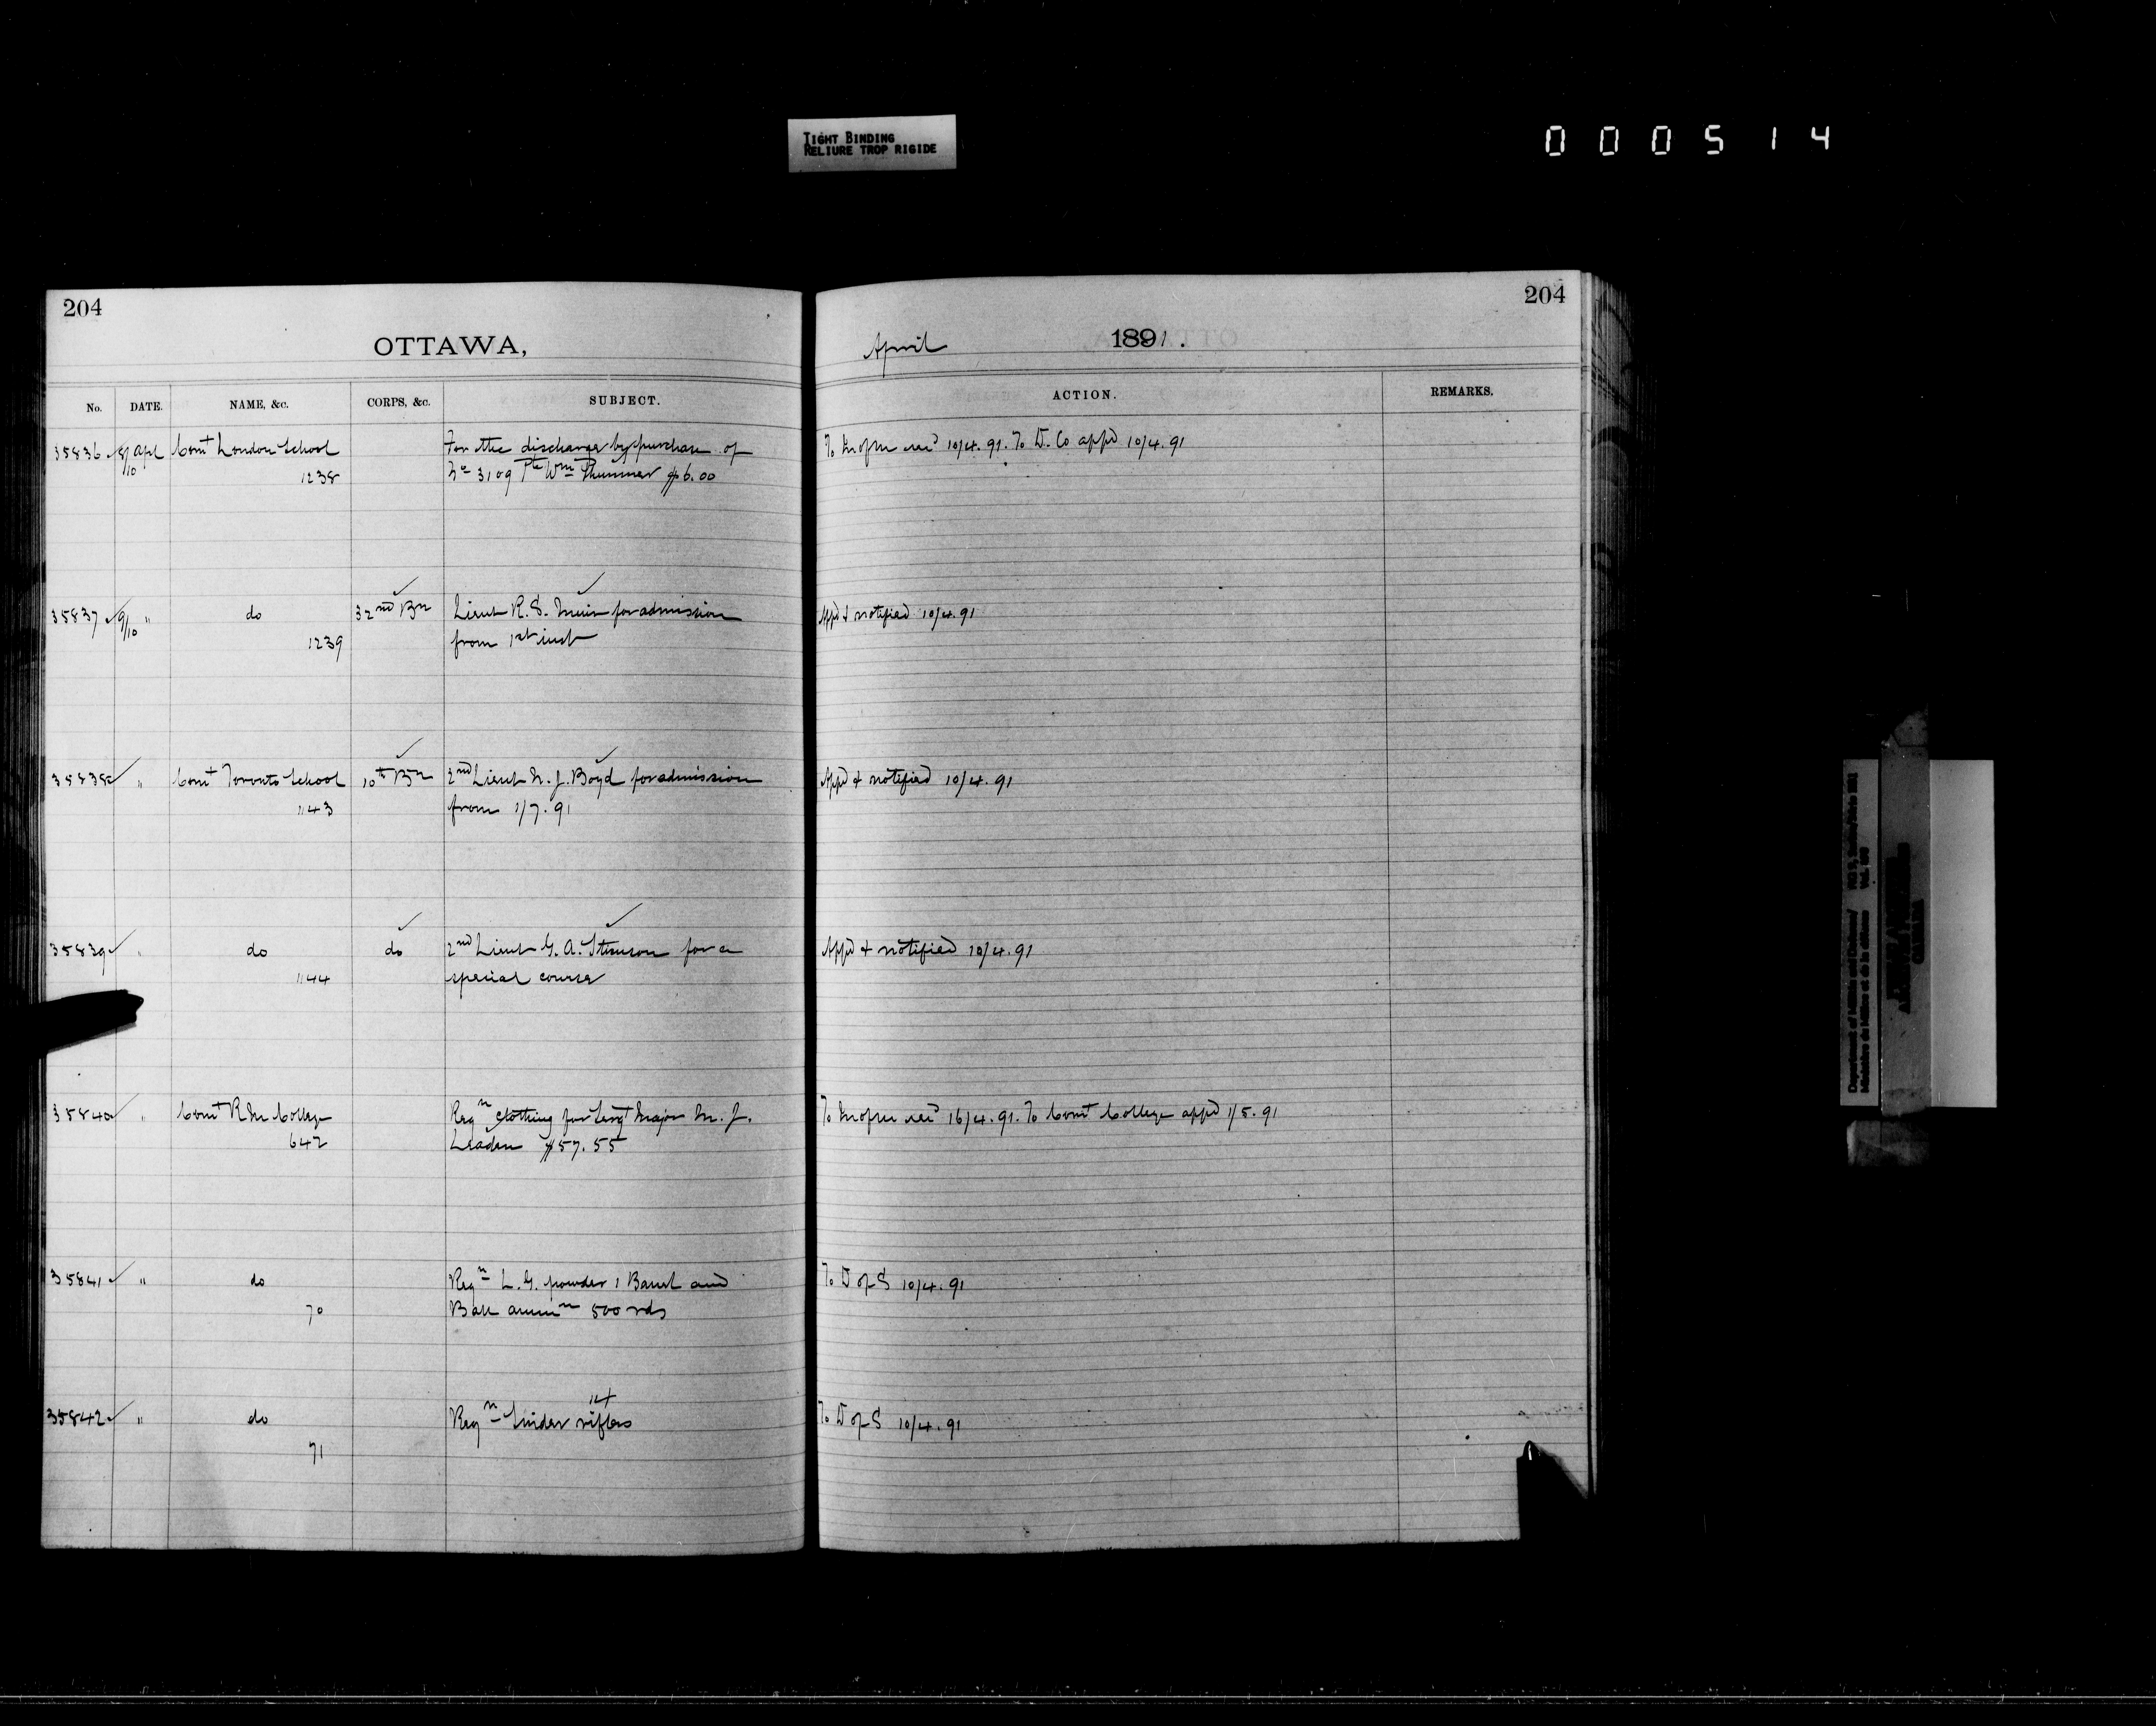 TIGHT BINDING
RELIURE TROP RIGIDE
000514
204
OTTAWA,
No. DATE. NAME, &c. CORPS, &c. SUBJECT.
35836 8/10 Apl Comt London School For the discharge by purchase of
1238 No 3109 Pte Wm $6.00
35837 9/10 " do 32nd Bn Lieut R. S. Muir for admission
1239 from 1st inst
35838 " Comt Toronto School 10th Bn 2nd Lieut N. J. Boyd for admission
1143 from 1/7.91
35839 " do do 2nd Lieut G. A. Stimson for a
1144 special course
35840 " Comt R M College Reqn clothing for Sergt Major M. J.
642 Leaden $57.55
35841 " do Reqn L. G. powder 1 Barrel and
70 Ball ammn 500 rds
14
35842 " do Reqn Snider rifles
71
204
April 1891.
ACTION. REMARKS.
To 10/4.91. To D. Co appd 10/4.91
Appd & notified 10/4.91
Appd & notified 10/4.91
Appd & notified 10/4.91
To 16/4.91. To Comt College appd 1/5.91
To D of S 10/4.91
To D of S 10/4.91